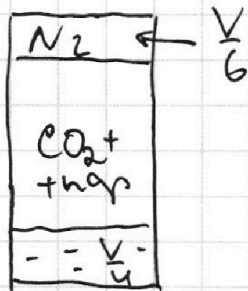 N2 ← V/6
CO2+
+пар
V/4